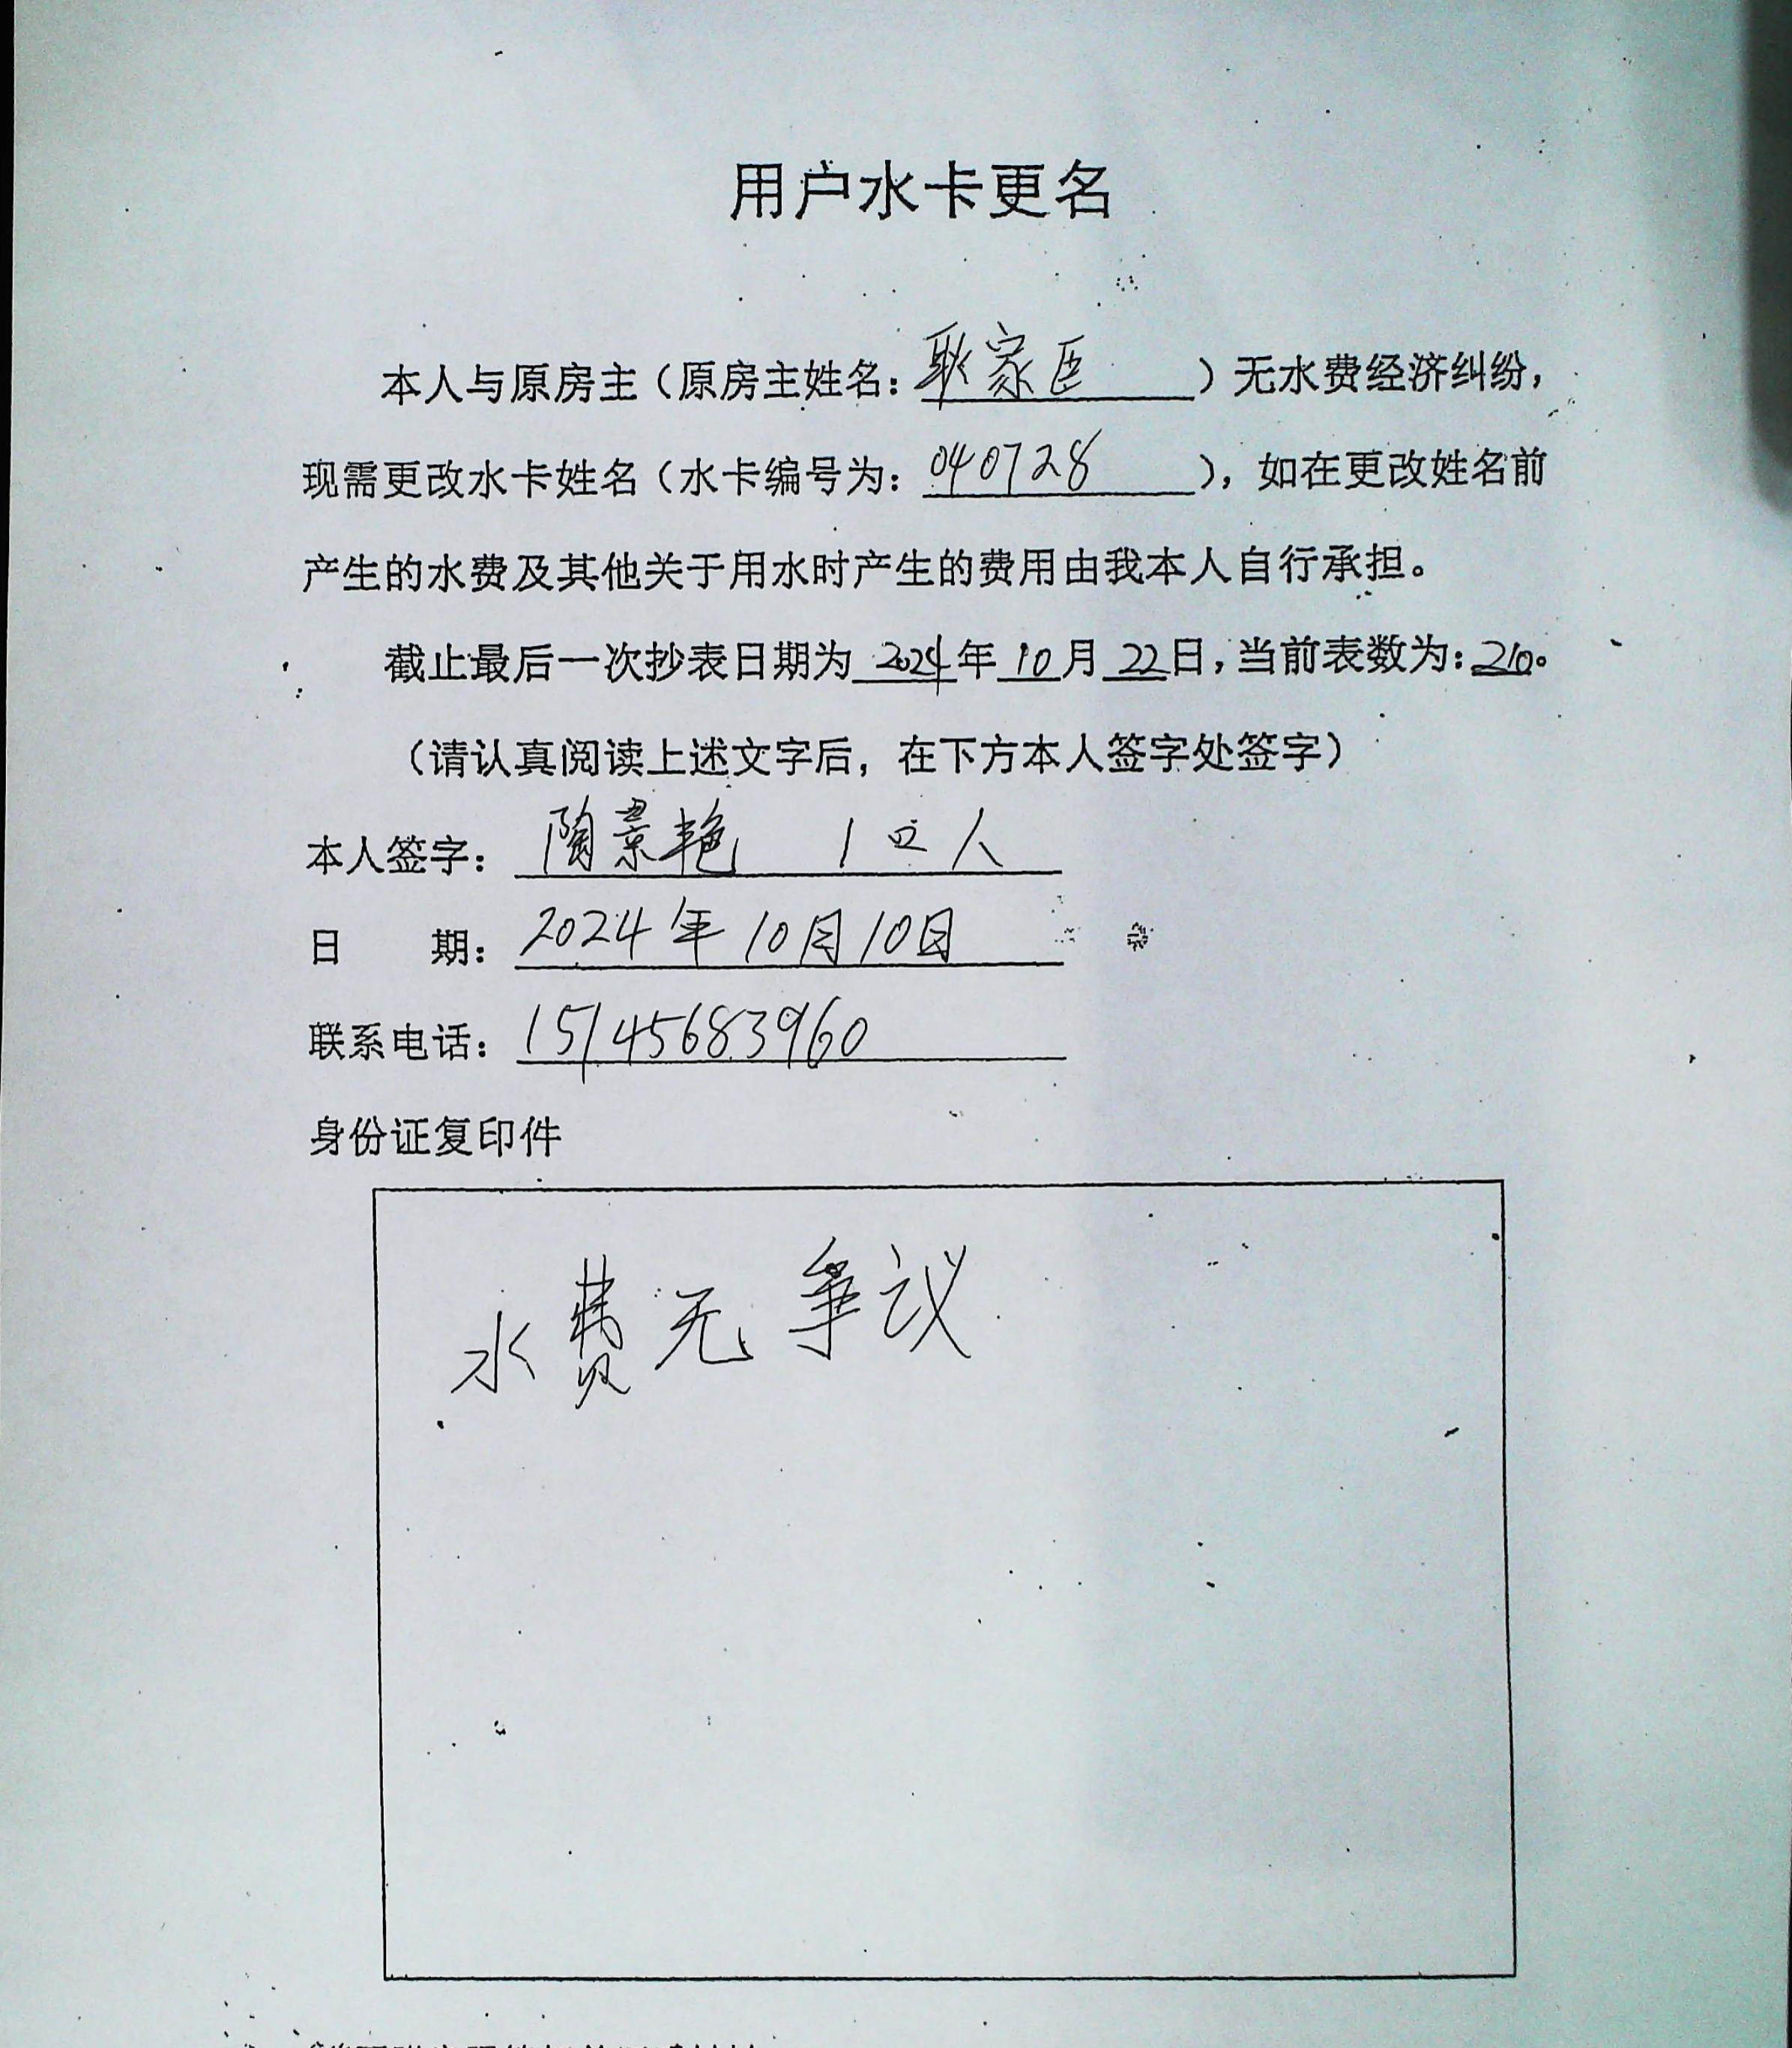 用户水卡更名
本人与原房主（原房主姓名：耿家臣）无水费经济纠纷，
现需更改水卡姓名（水卡编号为：040728），如在更改姓名前
产生的水费及其他关于用水时产生的费用由我本人自行承担。
截止最后一次抄表日期为 2024 年 10 月 22 日，当前表数为：210。
（请认真阅读上述文字后，在下方本人签字处签字）
本人签字：陶景艳 1口人
日 期：2024年10月10日
联系电话：15145683960
身份证复印件
水费无争议